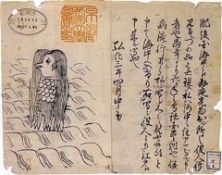 肥後国海中え毎夜光物出ル所之役人行
見るニづの如之者現ス私ハ海中ニ住アマビヱト申
者也当年より六ヶ年之間諸国豊作也併
病流行早々私ヲ写シ人々ニ見セ候得と
申て海中へ入けり右ハ写シ役人より江戸え
申来ル写也
弘化三年四月中旬